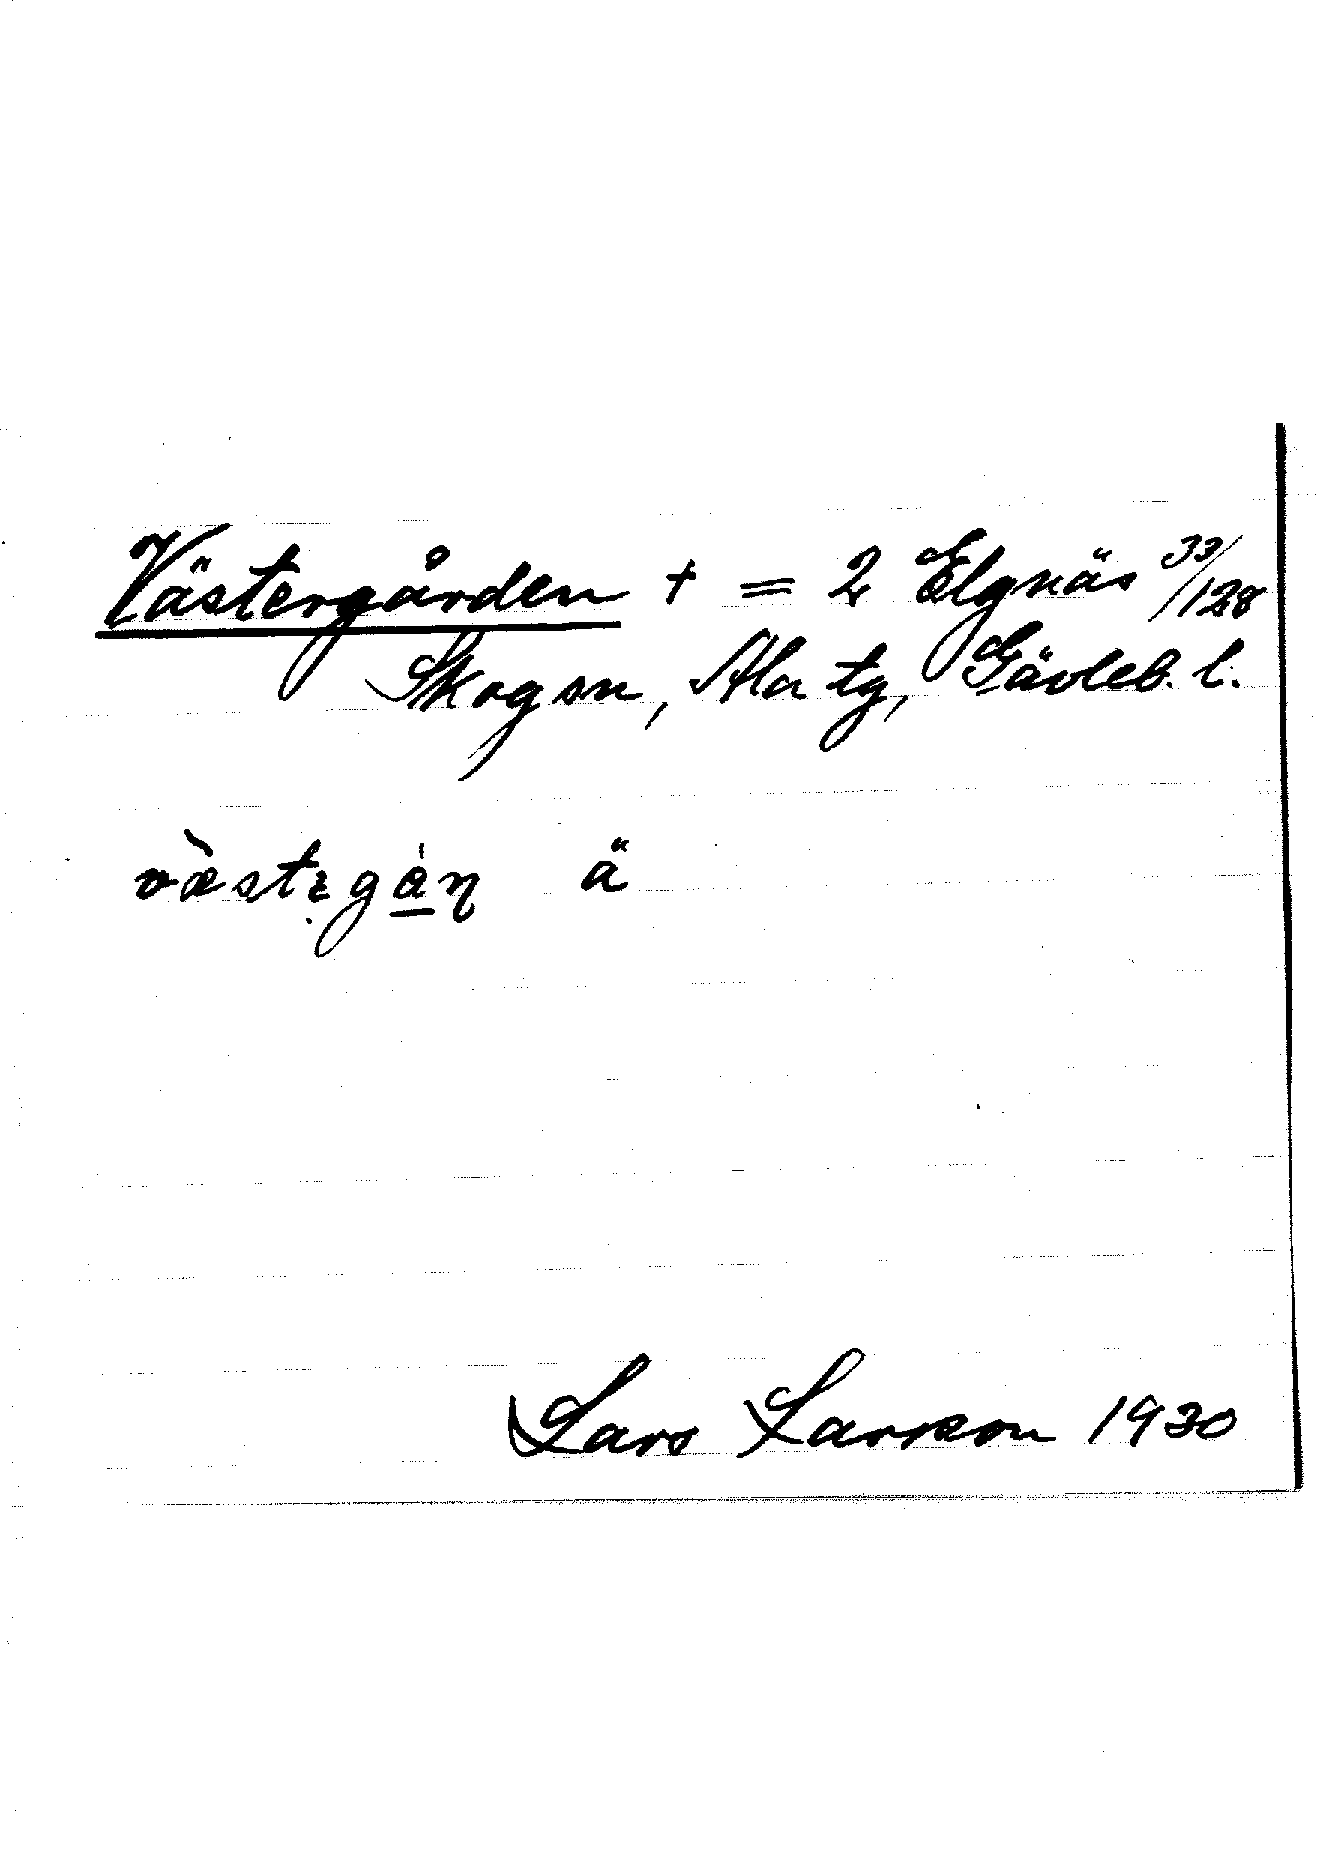 Västergården + = 2 Elgnäs 33/128
Skogsn, Ala tg, Gävleb. l.
ä
Lars Larsson 1930